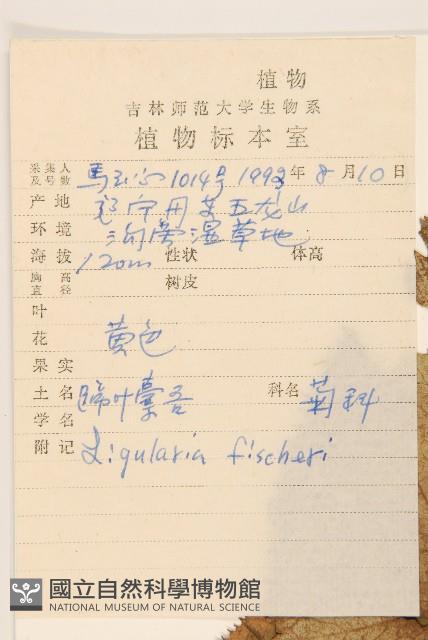 植物
吉林师范大学生物系
植物标本室
采集人及号数 馬 1014号 199 年 8 月 10 日
产地 辽宁丹 五龙山
环境 沟旁湿草地
海拔 120m 性状 体高
胸高直径 树皮
叶
花 黄色
果实
土名 蹄叶橐吾 科名 菊科
学名
附记 Ligularia fischeri
國立自然科學博物館
NATIONAL MUSEUM OF NATURAL SCIENCE